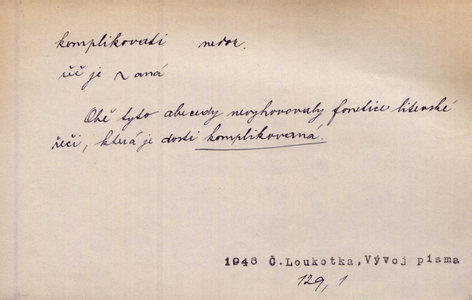 komplikovati nedok.
řeč je ~aná
Obě tyto abecedy nevyhovovaly fonetice litevské
řeči, která je dosti komplikovaná.
1946 Č.Loukotka,Vývoj písma
129,1